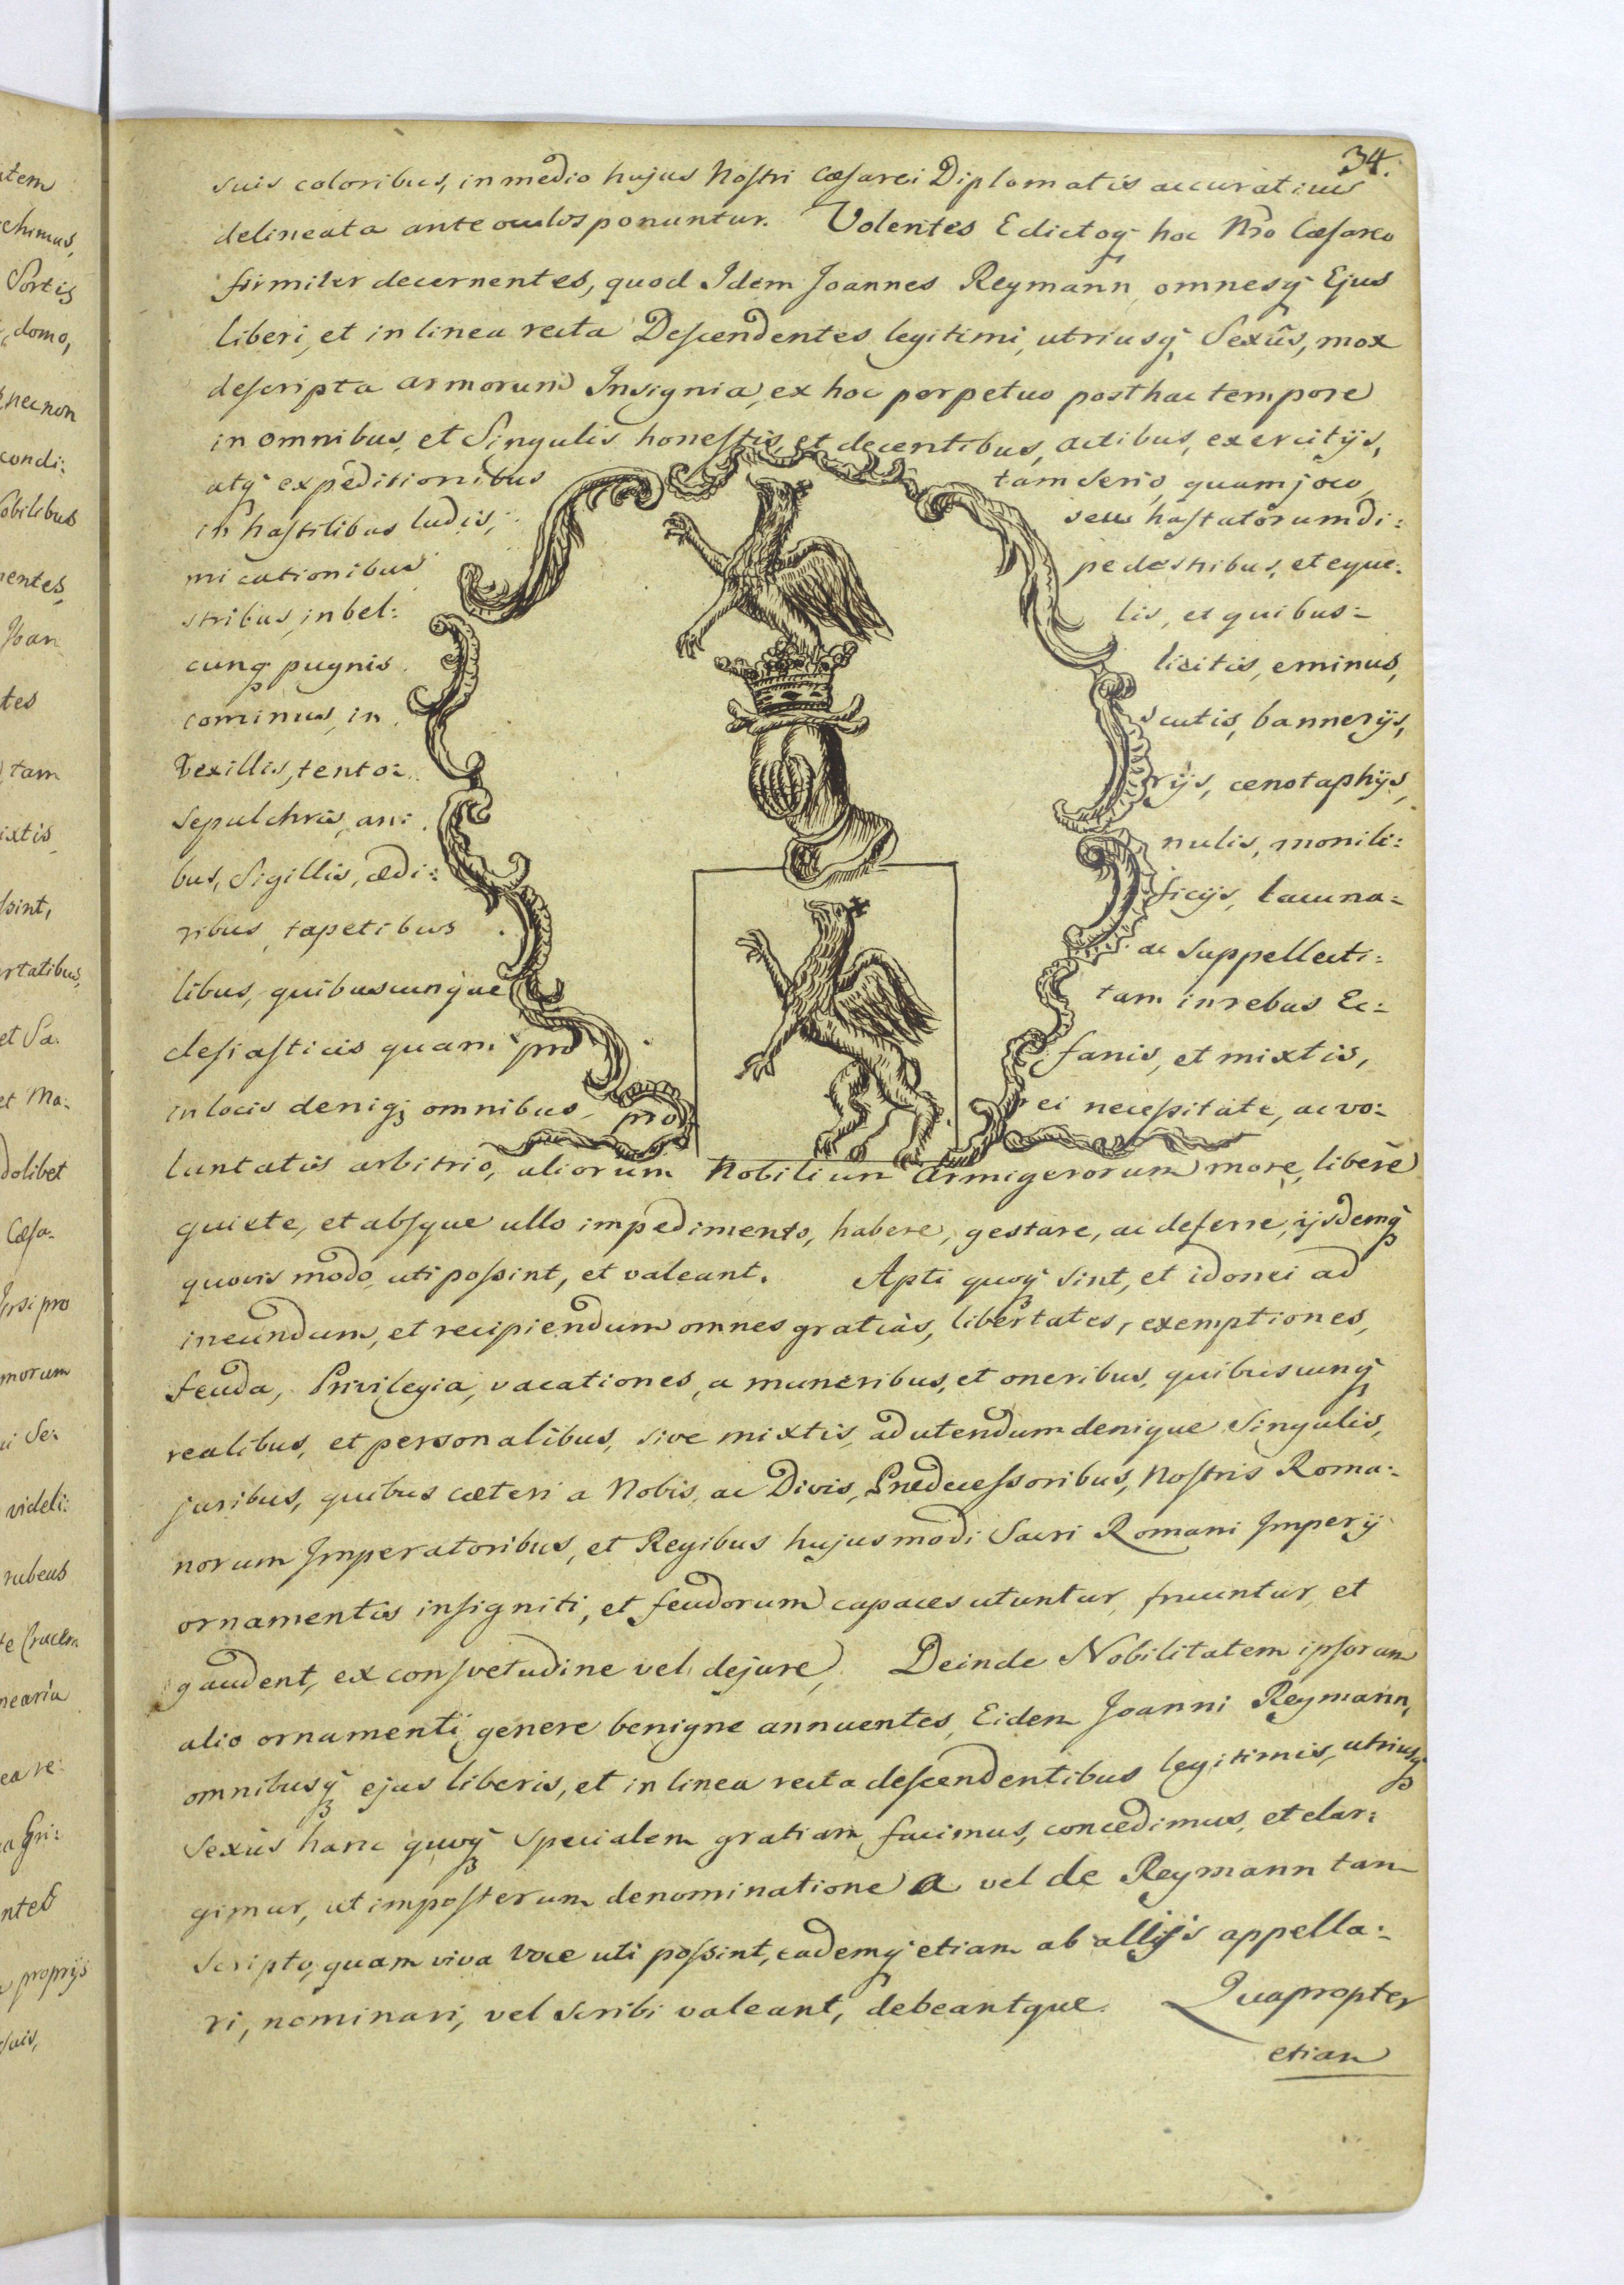 34.
suis coloribus, in medio hujus Nostri Cæsarei Diplomatis accuratius
delineata ante oculos ponuntur. Volentes Edictoq; hoc Nro Cæsareo
firmiter decernentes, quod Idem Joannes Reymann, omnesq; Ejus
liberi, et in linea recta Descendentes legitimi, utriusq; Sexûs, mox
descripta armorum Insignia, ex hoc perpetuo posthac tempore
in omnibus, et Singulis honestis, et decentibus, actibus, exercitijs,
atq; expeditionibus tam Serio, quam joco,
in hastilibus ludis, seu hastatorum di:
micationibus pedestribus, et eque:
stribus, in bel: lis, et quibus:
cunq; pugnis licitis, eminus,
cominus, in scutis, bannerijs,
Vexillis, tento: rijs, cenotaphijs,
Sepulchris, an: nulis, monili:
bus, Sigillis, ædi: ficijs, lacuna:
ribus, tapetibus ac Suppellecti:
libus, quibuscunque tam in rebus Ec:
clesiasticis quam pro fanis, et mixtis,
in locis deniq; omnibus, pro rei necessitate, ac vo:
luntatis arbitrio, aliorum Nobilium Armigerorum more, liberè
quiete, et absque ullo impedimento, habere, gestare, ac deferre, ijsdemq;
quovis modo, uti possint, et valeant. Apti quoq; Sint, et idonei ad
ineundum, et recipiendum omnes gratiàs, libertates, exemptiones,
feuda, Privilegia, vacationes, a muneribus, et oneribus, quibuscunq;
realibus, et personalibus, sive mixtis, ad utendum denique Singulis,
juribus, quibus cæteri a Nobis, ac Divis, Prædecessoribus, Nostris Roma:
norum Imperatoribus, et Regibus hujusmodi Sacri Romani Imperij
ornamentis insigniti, et feudorum capaces utuntur, fruuntur, et
gaudent, ex consvetudine vel dejure, Deinde Nobilitatem ipsoram
alio ornamenti genere benigne annuentes, Eidem Joanni Reymann,
omnibusq; ejus liberis, et in linea recta descendentibus legitimis, utriusq;
Sexûs hanc quoq; Specialem gratiam, facimus, concedimus, et elar:
gimur, ut imposterum denominatione a vel de Reymann tam
scripto, quam viva voce uti possint, eademq; etiam ab allijs appella:
ri, nominari, vel scribi valeant, debeantque. Quapropter
etiam